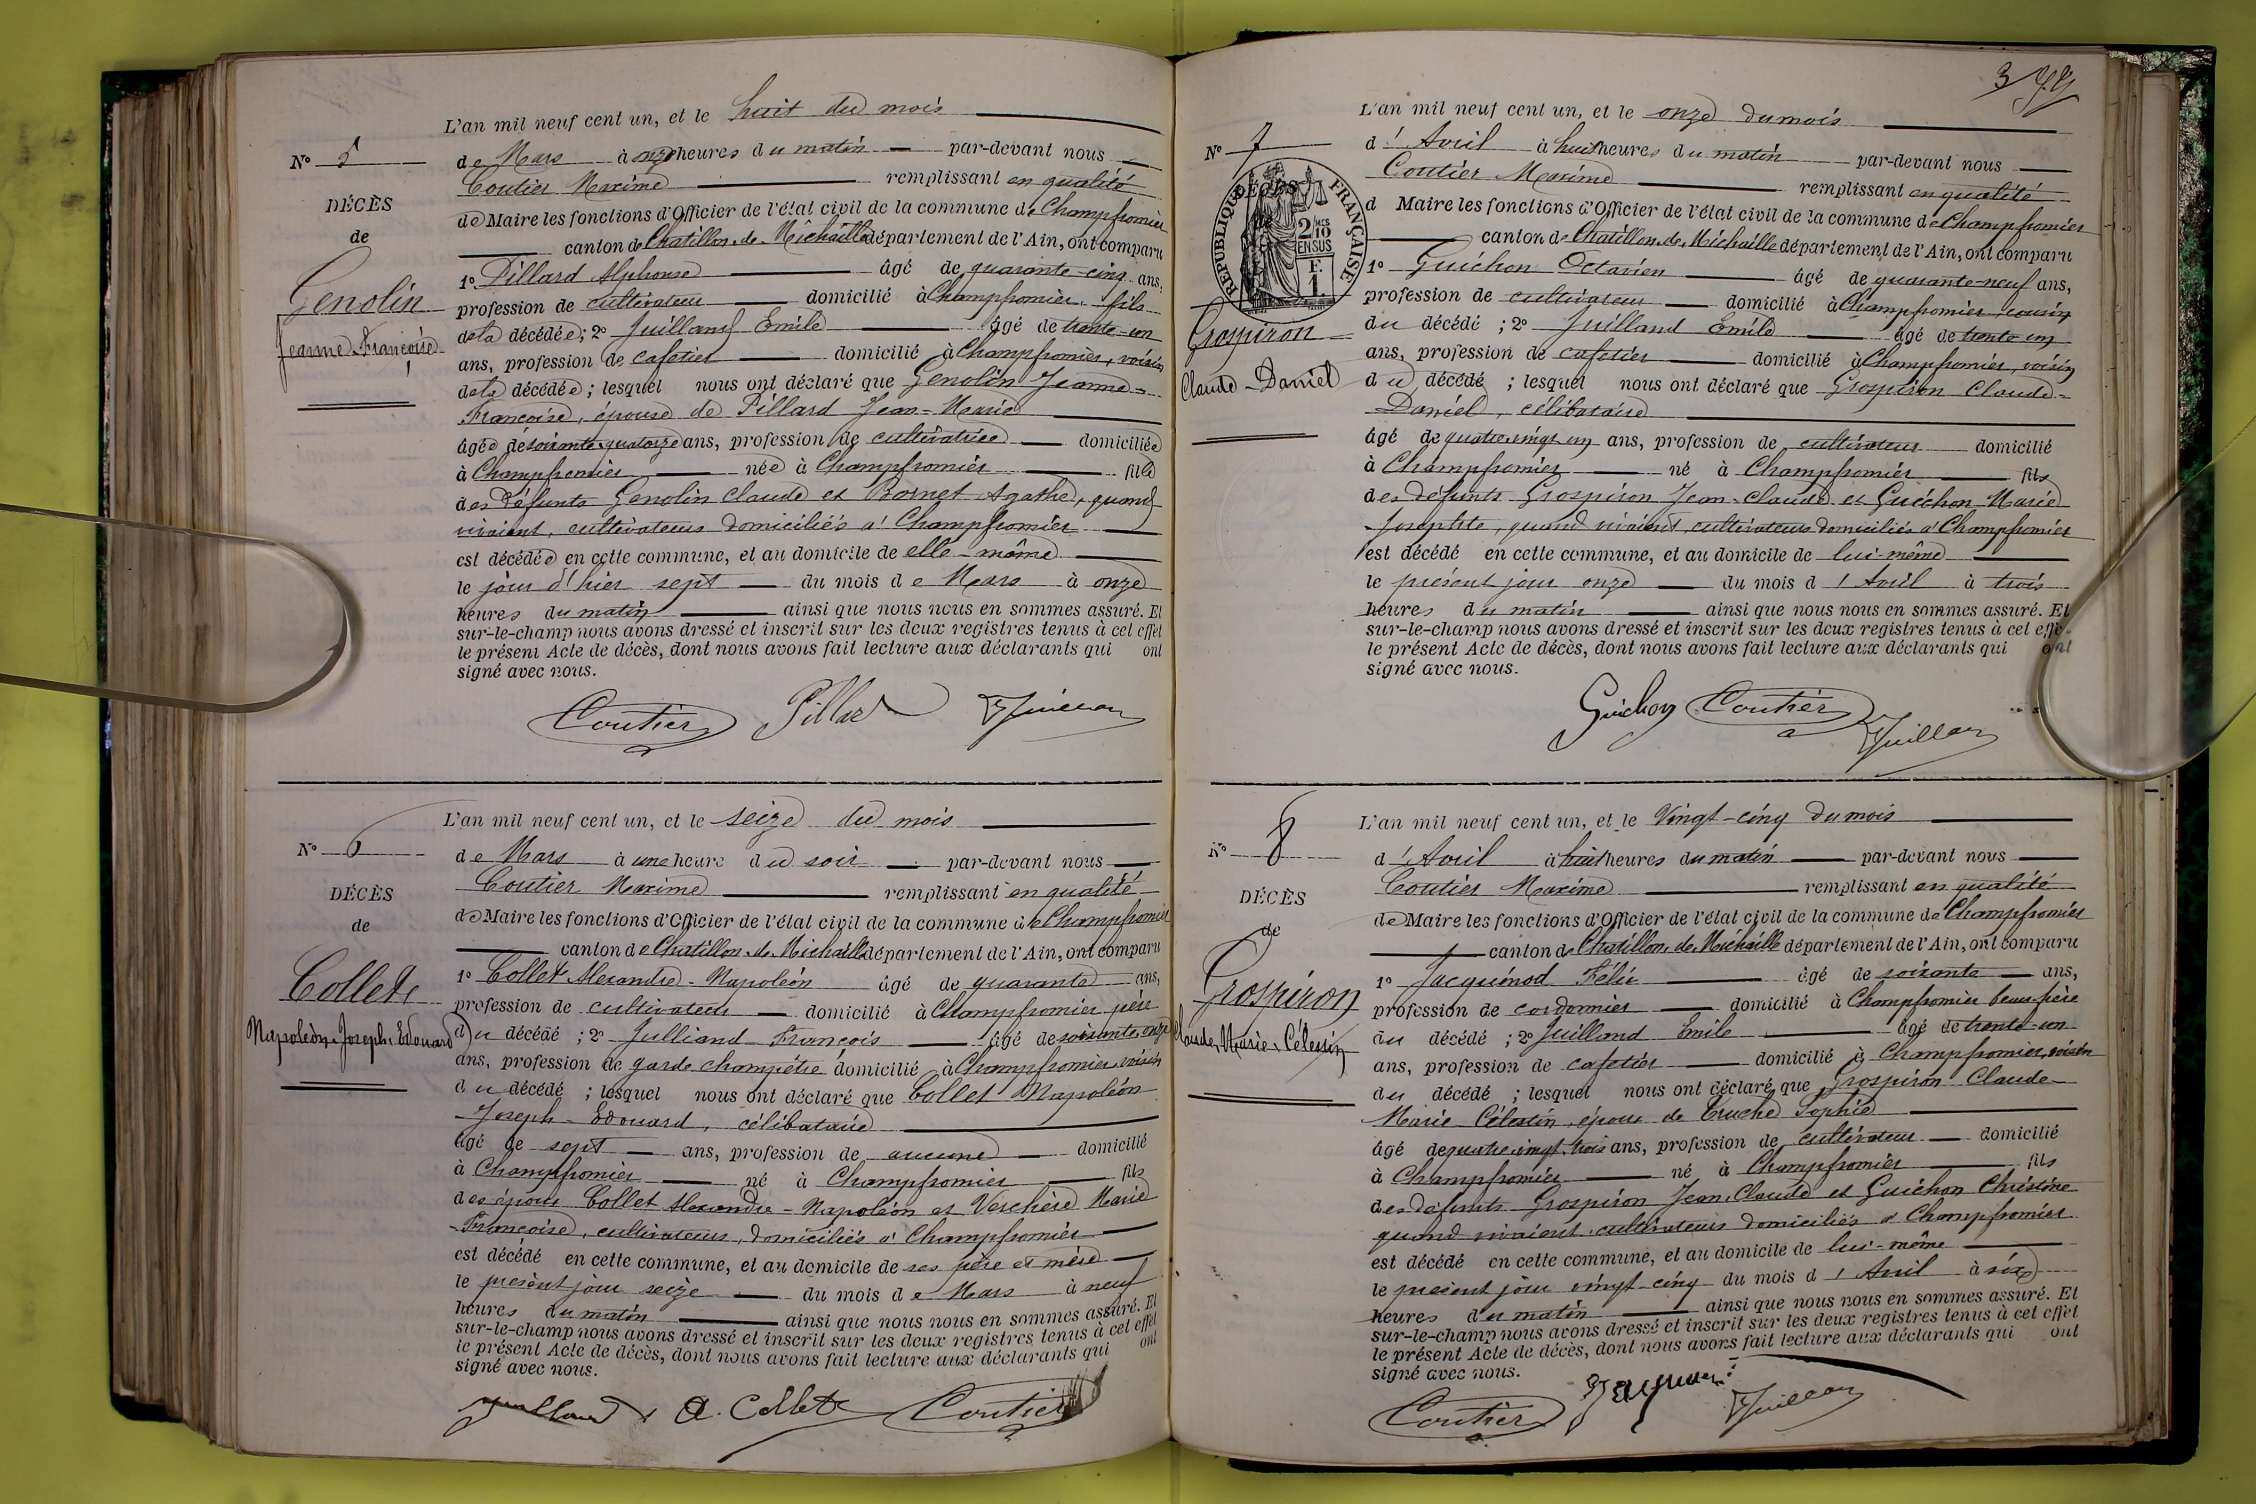 L'an mil neuf cent un, et le huit du mois
N° 5
de Mars à onze heures du matin par-devant nous
Coutier Maxime remplissant en qualité
DÉCÈS
de Maire les fonctions d'Officier de l'état civil de la commune de Champfromier
de
canton de Chatillon de Michaille département de l'Ain, ont comparu
1° Pillard Alphonse âgé de quarante-cinq ans,
Genolin
profession de cultivateur domicilié à Champfromier, fils
de la décédée ; 2° Juilland Emile âgé de trente-un
Jeanne Françoise
ans, profession de cafetier domicilié à Champfromier, voisin
de la décédée ; lesquel nous ont déclaré que Genolin Jeanne-
Françoise, épouse de Pillard Jean-Marie
âgée de soixante-quatorze ans, profession de cultivatrice domiciliée
à Champfromier née à Champfromier fille
des défunts Genolin Claude et Bornet Agathe, quand
vivaient, cultivateurs domiciliés à Champfromier
est décédée en cette commune, et au domicile de elle-même
le jour d'hier sept du mois de Mars à onze
heures du matin ainsi que nous nous en sommes assuré. Et
sur-le-champ nous avons dressé et inscrit sur les deux registres tenus à cet effet
le présent Acte de décès, dont nous avons fait lecture aux déclarants qui ont
signé avec nous.
Coutier Pillard Juilland
L'an mil neuf cent un, et le seize du mois
N° 6
de Mars à une heure du soir par-devant nous
Coutier Maxime remplissant en qualité
DÉCÈS
de Maire les fonctions d'Officier de l'état civil de la commune de Champfromier
de
canton de Chatillon de Michaille département de l'Ain, ont comparu
1° Collet Alexandre-Napoléon âgé de quarante ans,
Collet
profession de cultivateur domicilié à Champfromier père
Napoléon Joseph Edouard
du décédé ; 2° Julliand François âgé de soixante-onze
ans, profession de garde champêtre domicilié à Champfromier voisin
du décédé ; lesquel nous ont déclaré que Collet Napoléon
Joseph-Edouard, célibataire
âgé de sept ans, profession de aucune domicilié
à Champfromier né à Champfromier fils
des époux Collet Alexandre-Napoléon et Verchère Marie
Françoise, cultivateurs, domiciliés à Champfromier
est décédé en cette commune, et au domicile de ses père et mère
le présent jour seize du mois de Mars à neuf
heures du matin ainsi que nous nous en sommes assuré. Et
sur-le-champ nous avons dressé et inscrit sur les deux registres tenus à cet effet
le présent Acte de décès, dont nous avons fait lecture aux déclarants qui ont
signé avec nous.
A. Collet Coutier
L'an mil neuf cent un, et le onze du mois
N° 7
d'Avril à huit heures du matin par-devant nous
Coutier Maxime remplissant en qualité
DÉCÈS
RÉPUBLIQUE FRANÇAISE
2/10 EN SUS
d Maire les fonctions d'Officier de l'état civil de la commune de Champfromier
canton de Chatillon de Michaille département de l'Ain, ont comparu
1° Guichon Octavien âgé de quarante-neuf ans,
profession de cultivateur domicilié à Champfromier, cousin
Grospiron
du décédé ; 2° Juilland Emile âgé de trente un
ans, profession de cafetier domicilié à Champfromier, voisin
Claude-Daniel
du décédé ; lesquel nous ont déclaré que Grospiron Claude-
Daniel, célibataire
âgé de quatre-vingt un ans, profession de cultivateur domicilié
à Champfromier né à Champfromier fils
des défunts Grospiron Jean-Claude et Guichon Marie
Josephte, quand vivaient, cultivateurs domiciliés à Champfromier
est décédé en cette commune, et au domicile de lui-même
le présent jour onze du mois d'Avril à trois
heures du matin ainsi que nous nous en sommes assuré. Et
sur-le-champ nous avons dressé et inscrit sur les deux registres tenus à cet effet
le présent Acte de décès, dont nous avons fait lecture aux déclarants qui ont
signé avec nous.
Guichon Coutier Juilland
L'an mil neuf cent un, et le Vingt-cinq du mois
N° 8
d'Avril à huit heures du matin par-devant nous
Coutier Maxime remplissant en qualité
DÉCÈS
de Maire les fonctions d'Officier de l'état civil de la commune de Champfromier
de
canton de Chatillon de Michaille département de l'Ain, ont comparu
1° Jacquinod Félix âgé de soixante ans,
Grospiron
profession de cordonnier domicilié à Champfromier beau-père
Claude Marie Célestin
du décédé ; 2° Juilland Emile âgé de trente-un
ans, profession de cafetier domicilié à Champfromier, voisin
du décédé ; lesquel nous ont déclaré que Grospiron Claude
Marie Célestin, époux de Truche Sophie
âgé de quatre-vingt-trois ans, profession de cultivateur domicilié
à Champfromier né à Champfromier fils
des défunts Grospiron Jean Claude et Guichon Christine
quand vivaient cultivateurs domiciliés à Champfromier
est décédé en cette commune, et au domicile de lui-même
le présent jour vingt-cinq du mois d'Avril à six
heures du matin ainsi que nous nous en sommes assuré. Et
sur-le-champ nous avons dressé et inscrit sur les deux registres tenus à cet effet
le présent Acte de décès, dont nous avons fait lecture aux déclarants qui ont
signé avec nous.
Coutier Juilland